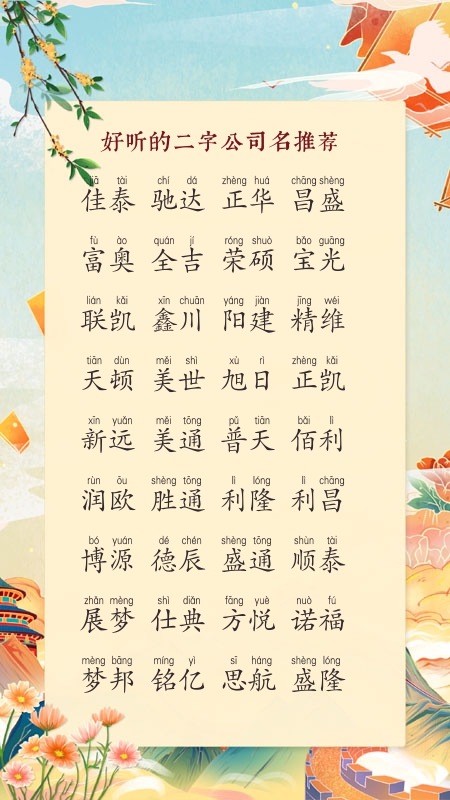 好听的二字公司名推荐
jiā tài chí dá zhèng huá chāng shèng
佳泰 驰达 正华 昌盛
fù ào quán jí róng shuò bǎo guāng
富奥 全吉 荣硕 宝光
lián kǎi xīn chuān yáng jiàn jīng wéi
联凯 鑫川 阳建 精维
tiān dùn měi shì xù rì zhèng kǎi
天顿 美世 旭日 正凯
xīn yuǎn měi tōng pǔ tiān bǎi lì
新远 美通 普天 佰利
rùn ōu shèng tōng lì lóng lì chāng
润欧 胜通 利隆 利昌
bó yuán dé chén shèng tōng shùn tài
博源 德辰 盛通 顺泰
zhǎn mèng shì diǎn fāng yuè nuò fú
展梦 仕典 方悦 诺福
mèng bāng míng yì sī háng shèng lóng
梦邦 铭亿 思航 盛隆